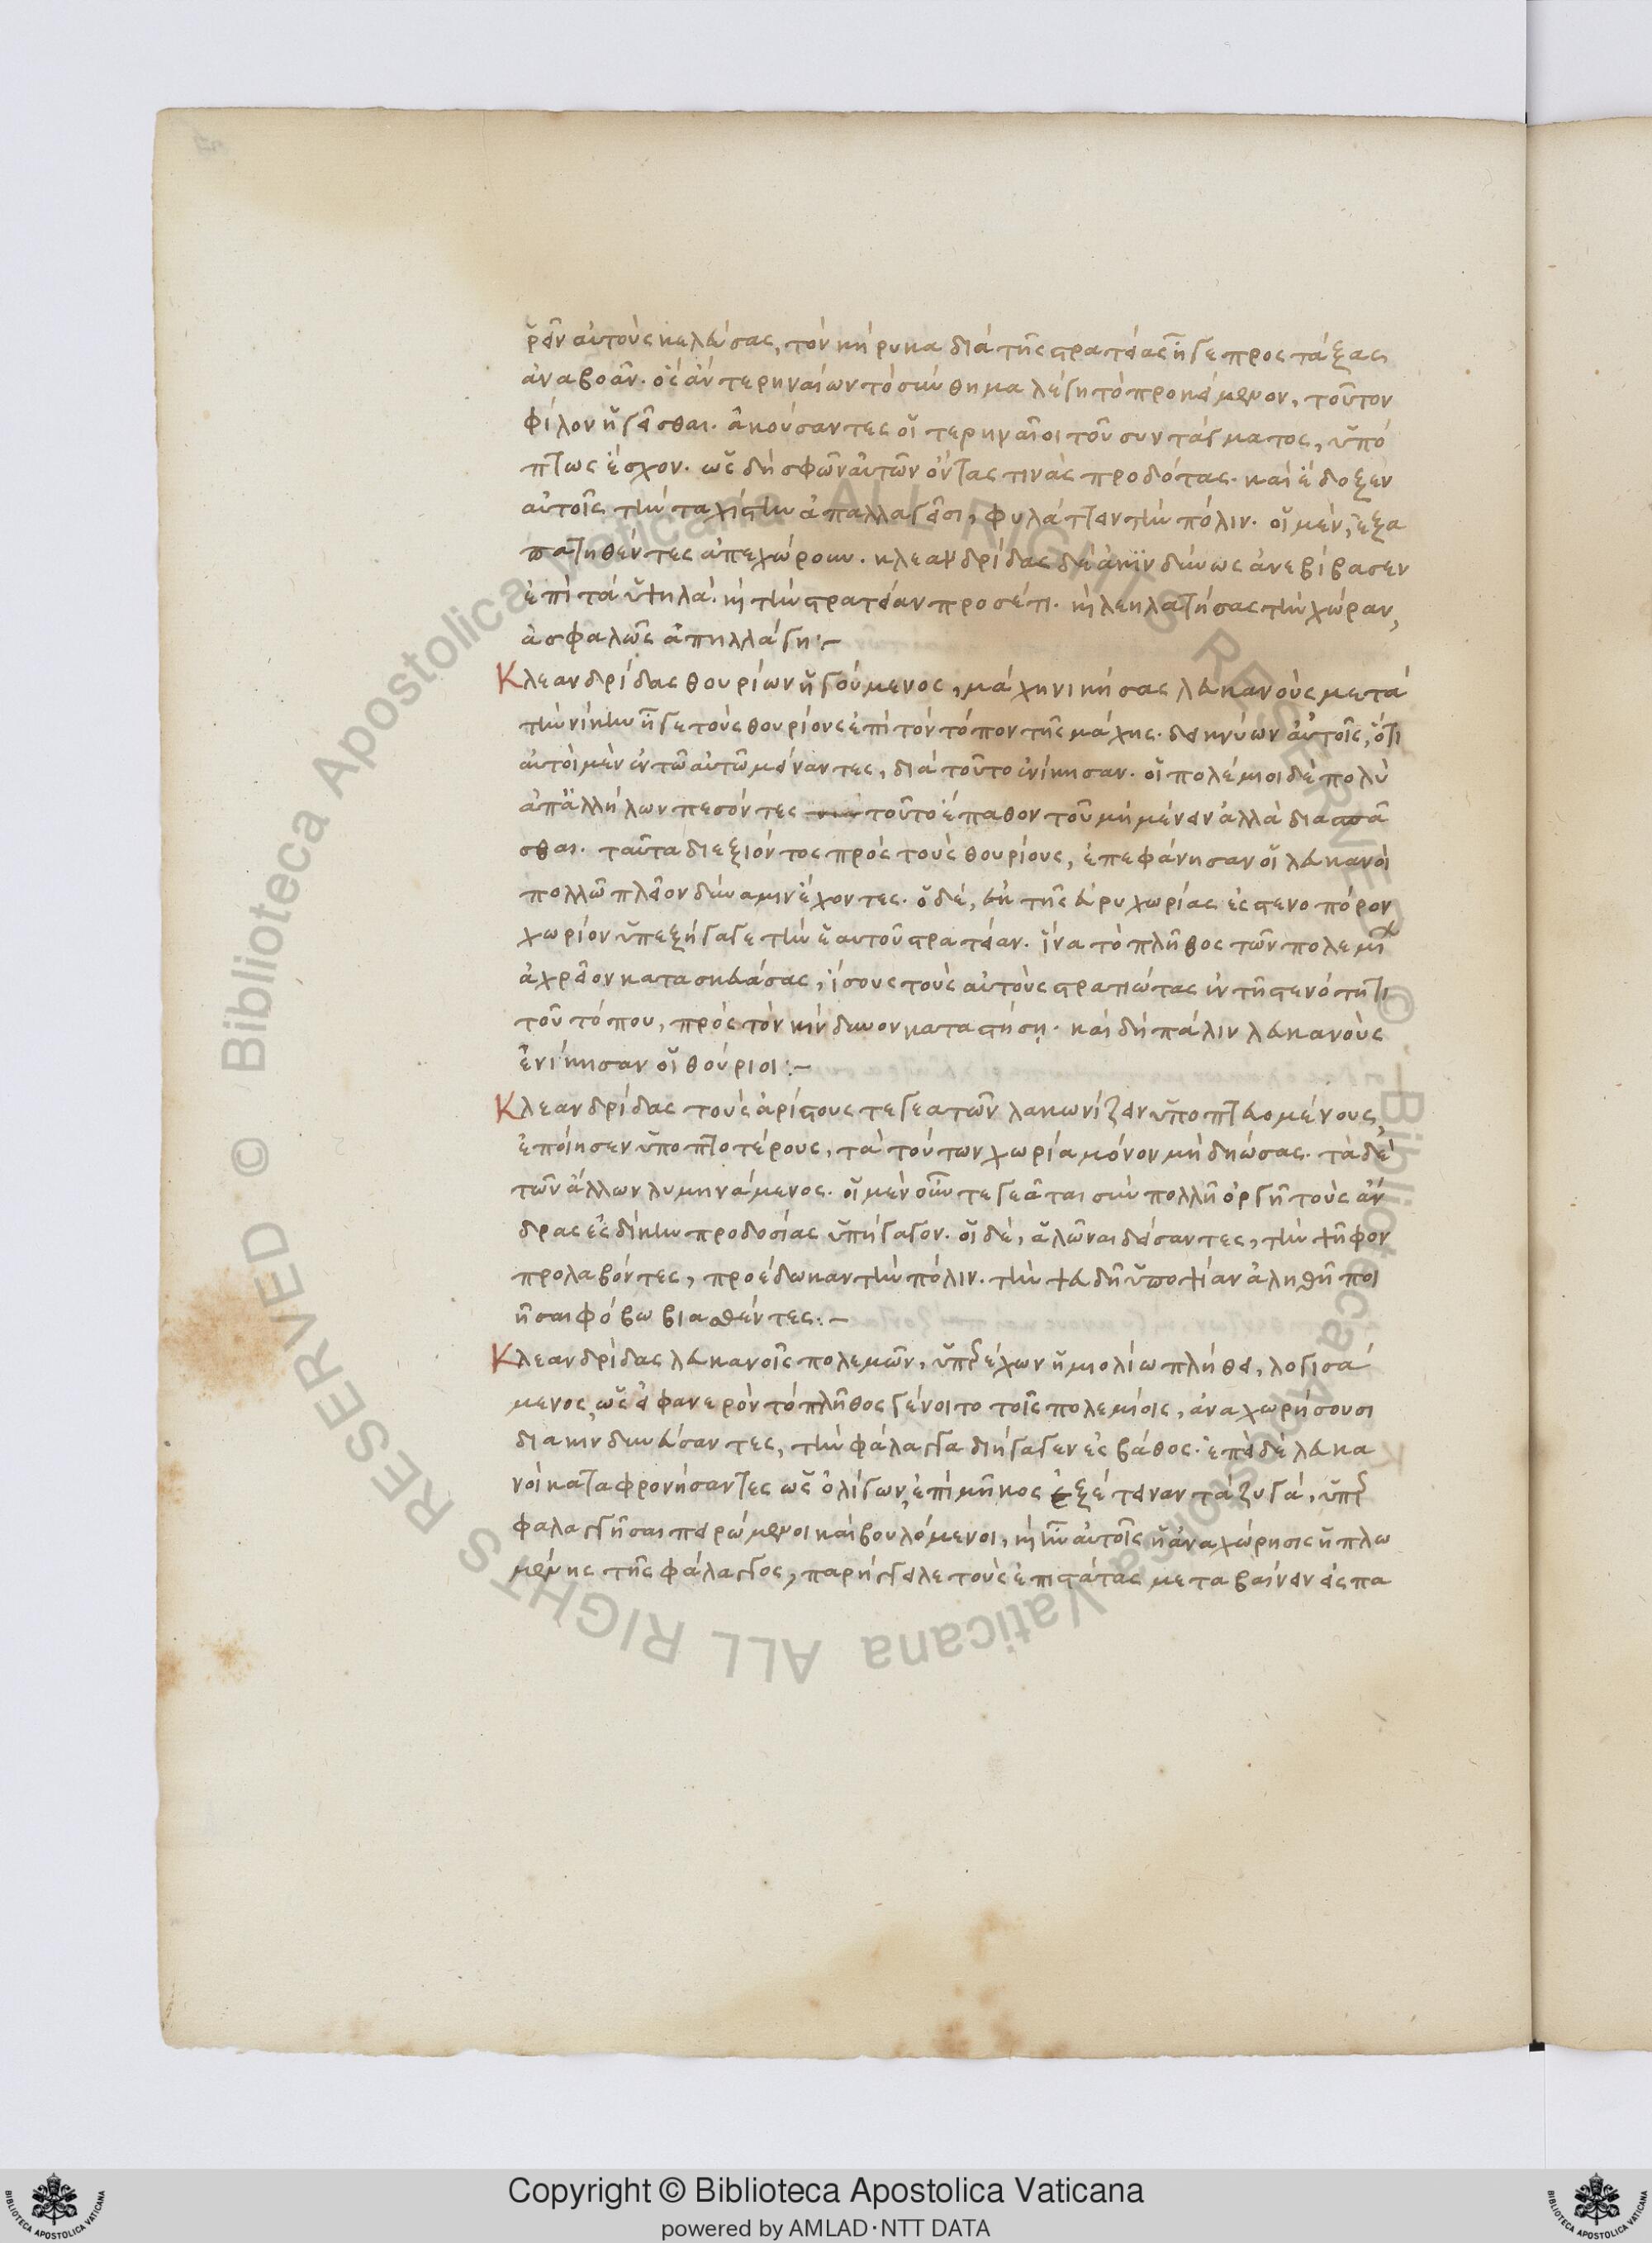 ρεῖν αὐτοὺς κελεύσας, τὸν κήρυκα διὰ τῆς στρατείας ἧγε προστάξας
ἀναβοᾶν. ὃς ἂν τερηναίων τὸ σύνθημα λέγῃ τὸ προκείμενον, τοῦτον
φίλον ἡγεῖσθαι. ἀκούσαντες οἱ τερηναῖοι τοῦ συντάγματος, ὑπό
πτως ἔσχον. ὡς δὴ σφῶν αὐτῶν ὄντας τινὰς προδότας. καὶ ἔδοξεν
αὐτοῖς τὴν ταχίστην ἀπαλλαγεῖσι, φυλάττειν τὴν πόλιν. οἱ μὲν, ἐξα
πατηθέντες ἀπεχώρουν. κλεανδρίδας δὲ ἀκινδύνως ἀνεβίβασεν
ἐπὶ τὰ ὑψηλὰ. καὶ τὴν στρατείαν προσέτι. καὶ λεηλατήσας τὴν χώραν,
ἀσφαλῶς ἀπηλλάγη:-
Κλεανδρίδας θουρίων ἡγούμενος, μάχῃ νικήσας λευκανοὺς μετὰ
τὴν νίκην ἧγε τοὺς θουρίους ἐπὶ τὸν τόπον τῆς μάχης. δεικνύων αὐτοῖς, ὅτι
αὐτοὶ μὲν ἐν τῶ αὐτῶ μείναντες, διὰ τοῦτο ἐνίκησαν. οἱ πολέμιοι δὲ πολὺ
ἀπἀλλήλων πεσόντες τοῦτο ἔπαθον τοῦ μὴ μένειν ἀλλὰ διασπᾶ
σθαι. ταῦτα διεξιόντος πρὸς τοὺς θουρίους, ἐπεφάνησαν οἱ λευκανοὶ
πολλῶ πλεῖον δύναμιν ἔχοντες. ὁ δέ, ἐκ τῆς εὐρυχωρίας ἐς στενοπόρον
χωρίον ὑπεξήγαγε τὴν ἑαυτοῦ στρατείαν. ἵνα τὸ πλῆθος τῶν πολεμίων
ἀχρεῖον κατασκευάσας, ἴσους τοὺς αὐτοὺς στρατιώτας ἐν τῆ στενότητι
τοῦ τόπου, πρὸς τὸν κίνδυνον καταστήσῃ. καὶ δὴ πάλιν λευκανοὺς
ἐνίκησαν οἱ θούριοι:-
Κλεανδρίδας τοὺς ἀρίστους τεγεατῶν λακωνίζειν ὑποπτευομένους,
ἐποίησεν ὑποπτοτέρους, τὰ τούτων χωρία μόνον μὴ δηώσας. τὰ δὲ
τῶν ἄλλων λυμηνάμενος. οἱ μὲν οὖν τεγεᾶται σὺν πολλῆ ὀργῆ τοὺς ἄν
δρας εἰς δίκην προδοσίας ὑπήγαγον. οἱ δέ, ἁλῶναι δείσαντες, τὴν ψῆφον
προλαβόντες, προέδωκαν τὴν πόλιν. τὴν ψευδῆ ὑποψίαν ἀληθῆ ποι
ῆσαι φόβω βιασθέντες:-
Κλεανδρίδας λευκανοῖς πολεμῶν, ὑπερέχων ἡμιολίω πλήθει, λογισά
μενος, ὡς εἰ φανερὸν τὸ πλῆθος γένοιτο τοῖς πολεμίοις, ἀναχωρήσουσι
διακινδυνεύσαντες, τὴν φάλαγγα διήγαγεν εἰς βάθος. ἐπεὶ δὲ λευκα
νοὶ καταφρονήσαντες ὡς ὀλίγων, ἐπὶ μῆκος ἐξέτειναν τὰ ζυγά, ὑπερ
φαλαγγῆσαι πειρώμενοι καὶ βουλόμενοι, καὶ ἦν αὐτοῖς ἡ ἀναχώρησις ἡπλω
μένης τῆς φάλαγγος, παρήγγειλε τοὺς ἐπιστάτας μεταβαίνειν εἰς πα
Copyright © Biblioteca Apostolica Vaticana
powered by AMLAD·NTT DATA
© Biblioteca Apostolica Vaticana ALL RIGHTS RESERVED © Biblioteca Apostolica Vaticana ALL RIGHTS RESERVED
BIBLIOTECA APOSTOLICA VATICANA
BIBLIOTECA APOSTOLICA VATICANA